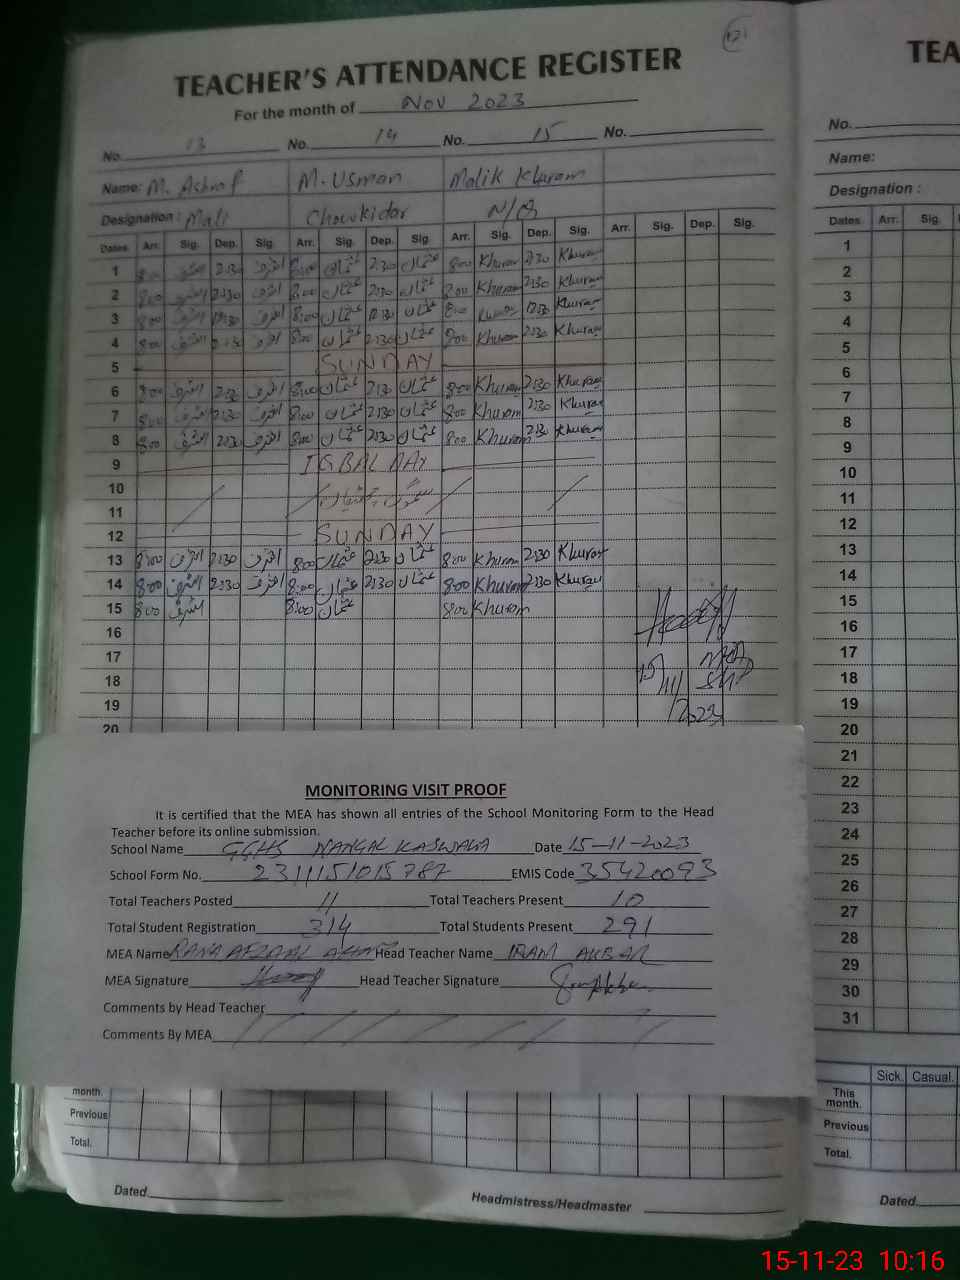 121
TEACHER'S ATTENDANCE REGISTER
For the month of Nov 2023
No. 13 No. 14 No. 15 No.
Name: M. Ashraf M. Usman Malik Khuram
Designation: Mali Chowkidar N/Q
Dates. Arr. Sig. Dep. Sig. Arr. Sig. Dep. Sig. Arr. Sig. Dep. Sig. Arr. Sig. Dep. Sig.
1 8:00 اشرف 2:30 اشرف 8:00 عثمان 2:30 عثمان 8:00 Khuram 2:30 Khuram
2 8:00 اشرف 2:30 اشرف 8:00 عثمان 2:30 عثمان 8:00 Khuram 2:30 Khuram
3 8:00 اشرف 12:30 اشرف 8:00 عثمان 12:30 عثمان 8:00 Khuram 12:30 Khuram
4 8:00 اشرف 2:30 اشرف 8:00 عثمان 2:30 عثمان 8:00 Khuram 2:30 Khuram
5 SUNDAY
6 8:00 اشرف 2:30 اشرف 8:00 عثمان 2:30 عثمان 8:00 Khuram 2:30 Khuram
7 8:00 اشرف 2:30 اشرف 8:00 عثمان 2:30 عثمان 8:00 Khuram 2:30 Khuram
8 8:00 اشرف 2:30 اشرف 8:00 عثمان 2:30 عثمان 8:00 Khuram 2:30 Khuram
9 IQBAL DAY
10
11
12 SUNDAY
13 8:00 اشرف 2:30 اشرف 8:00 عثمان 2:30 عثمان 8:00 Khuram 2:30 Khuram
14 8:00 اشرف 2:30 اشرف 8:00 عثمان 2:30 عثمان 8:00 Khuram 2:30 Khuram
15 8:00 اشرف 8:00 عثمان 8:00 Khuram
16
17
18
19
20
15/11/2023
MONITORING VISIT PROOF
It is certified that the MEA has shown all entries of the School Monitoring Form to the Head
Teacher before its online submission.
School Name GGHS NANGAL KASWALA Date 15-11-2023
School Form No. 2311151015787 EMIS Code 35420093
Total Teachers Posted 11 Total Teachers Present 10
Total Student Registration 314 Total Students Present 291
MEA Name RANA AFZAAL Head Teacher Name IRAM AKBAR
MEA Signature Head Teacher Signature
Comments by Head Teacher
Comments By MEA
month.
Previous
Total.
Dated. Headmistress/Headmaster
TEA
No.
Name:
Designation :
Dates. Arr. Sig.
1
2
3
4
5
6
7
8
9
10
11
12
13
14
15
16
17
18
19
20
21
22
23
24
25
26
27
28
29
30
31
Sick. Casual.
This
month.
Previous
Total.
Dated.
15-11-23 10:16